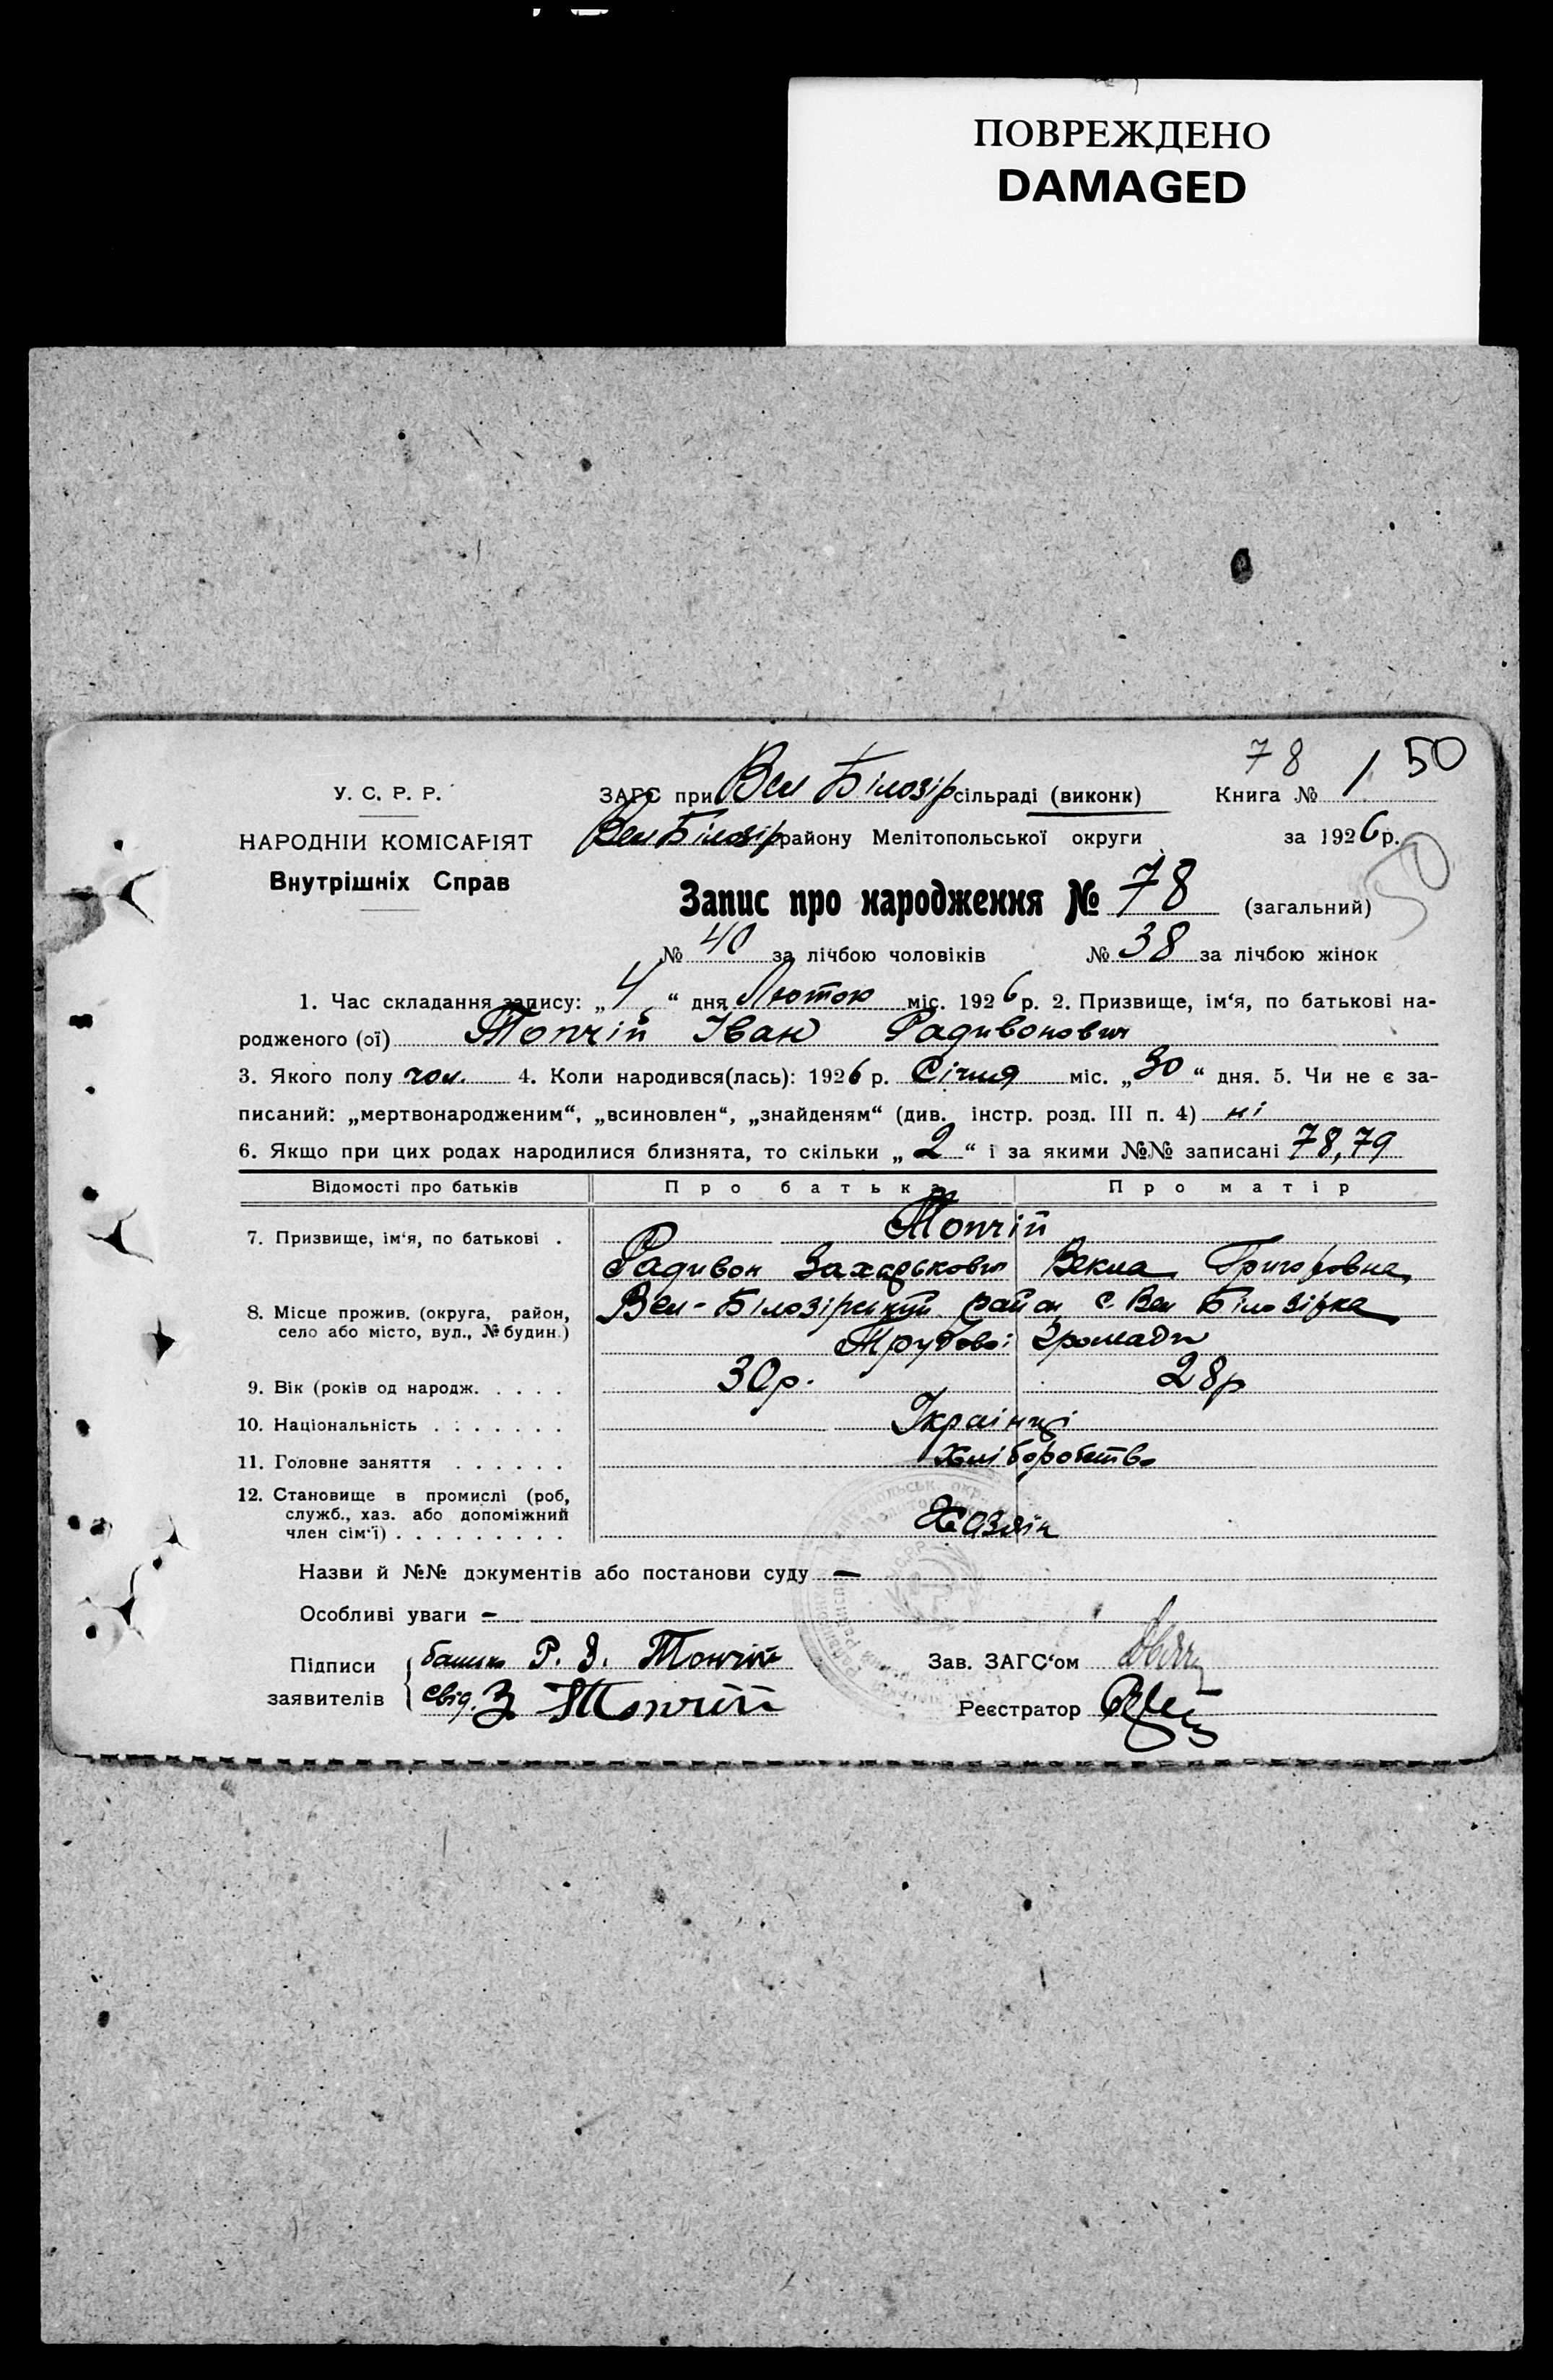 ПОВРЕЖДЕНО
DAMAGED
78 / 50
У. С. Р. Р.
ЗАГС при Вел Білозір сільраді (виконк)
Книга №
НАРОДНІЙ КОМІСАРІЯТ
Внутрішніх Справ
Вел Білозір району Мелітопольської округи
за 1926 р.
50
Запис про народження № 78 (загальний)
№ 40 за лічбою чоловіків № 38 за лічбою жінок
1. Час складання запису: „ 4 “ дня Лютого міс. 1926 р. 2. Призвище, ім‘я, по батькові на-
родженого (ої) Топчій Іван Радивонович
3. Якого полу чол. 4. Коли народився(лась): 1926 р. Січня міс. „ 30 “ дня. 5. Чи не є за-
писаний: „мертвонародженим“, „всиновлен“, „знайденям“ (див. інстр. розд. III п. 4) ні
6. Якщо при цих родах народилися близнята, то скільки „ 2 “ і за якими №№ записані 78, 79
Відомості про батьків Про батька Про матір
7. Призвище, ім‘я, по батькові . Топчій
Радивон Захарькович Векла Григоровна
8. Місце прожив. (округа, район,
село або місто, вул., № будин.)
Вел-Білозірський район с. Вел Білозірка
Трудової громади
9. Вік (років од народж. . . . . 30р. 28р
10. Національність . . . . . . . Українці
11. Головне заняття . . . . . . Хліборобство
12. Становище в промислі (роб,
служб., хаз. або допоміжний
член сім‘ї) . . . . . . . . . Хазяїн
Назви й №№ документів або постанови суду —
Особливі уваги —
Підписи
заявителів
батько Р. З. Топчій
свід. З Топчій
Зав. ЗАГС‘ом
Реєстратор